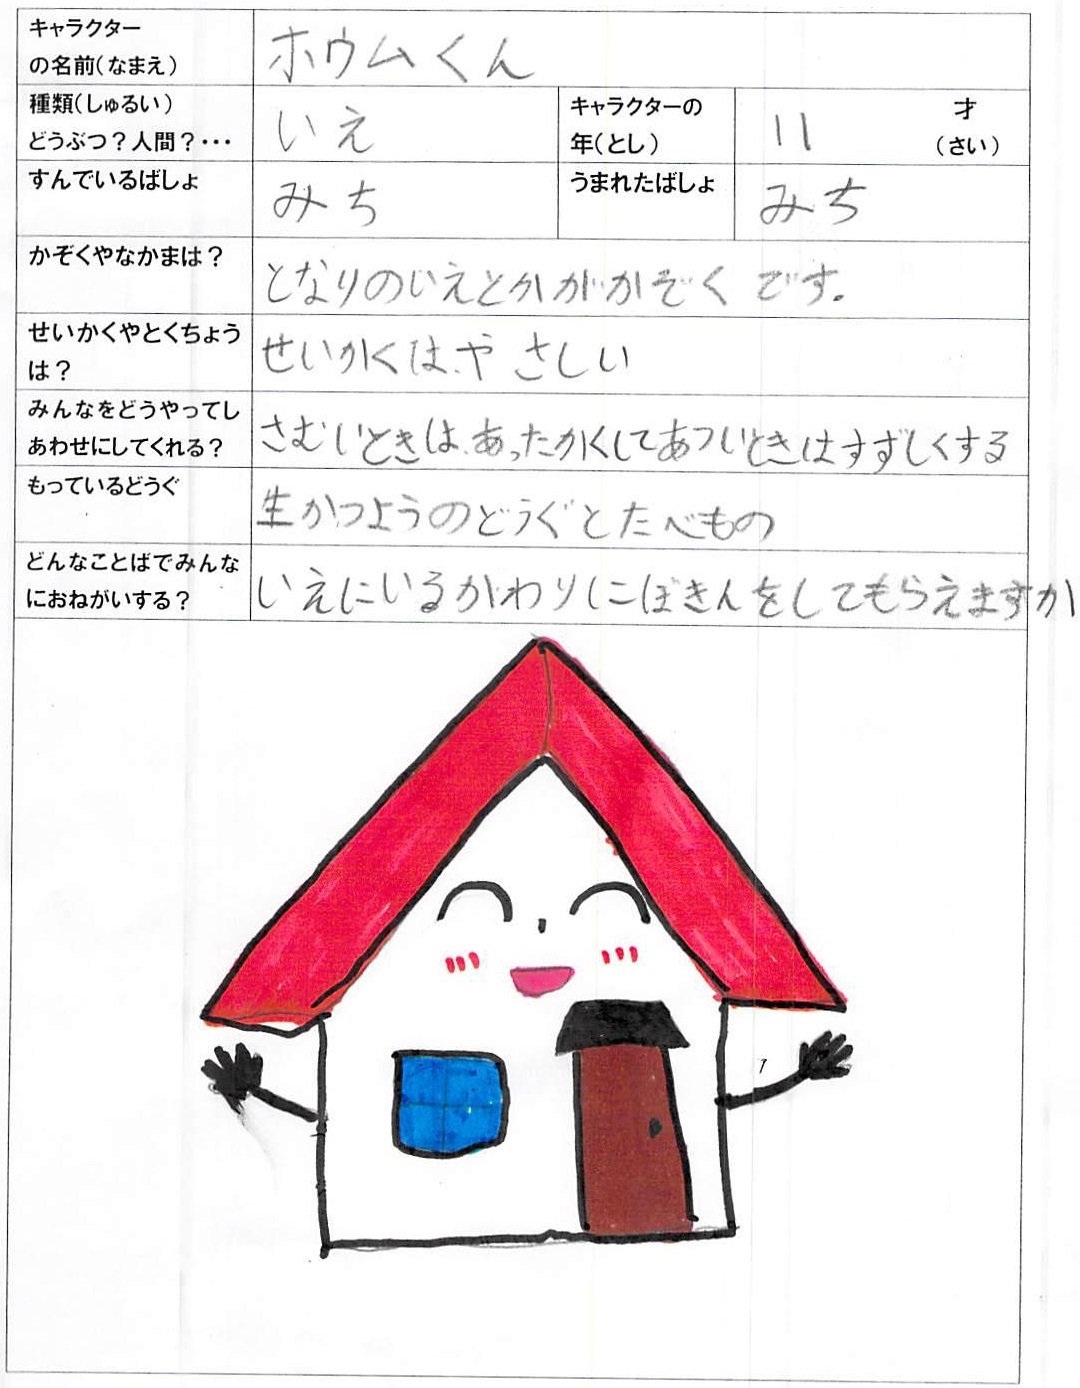 キャラクター
の名前(なまえ)
ホウムくん
種類(しゅるい)
どうぶつ?人間?・・・
いえ
キャラクターの
年(とし)
11
才
(さい)
すんでいるばしょ
みち
うまれたばしょ
みち
かぞくやなかまは?
となりのいえとかがかぞくです.
せいかくやとくちょう
は?
せいかくはやさしい
みんなをどうやってし
あわせにしてくれる?
さむいときは、あったかくしてあついときはすずしくする
もっているどうぐ
生かつようのどうぐとたべもの
どんなことばでみんな
におねがいする?
いえにいるかわりにぼきんをしてもらえますか